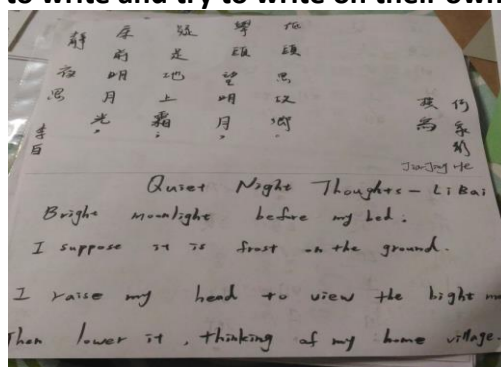 to write and try to write on their own
靜夜思
李白
床前明月光，
疑是地上霜。
舉頭望明月，
低頭思故鄉。
Quiet Night Thoughts - Li Bai
Bright moonlight before my bed.
I suppose it is frost on the ground.
I raise my head to view the bight
Then lower it, thinking of my home village.